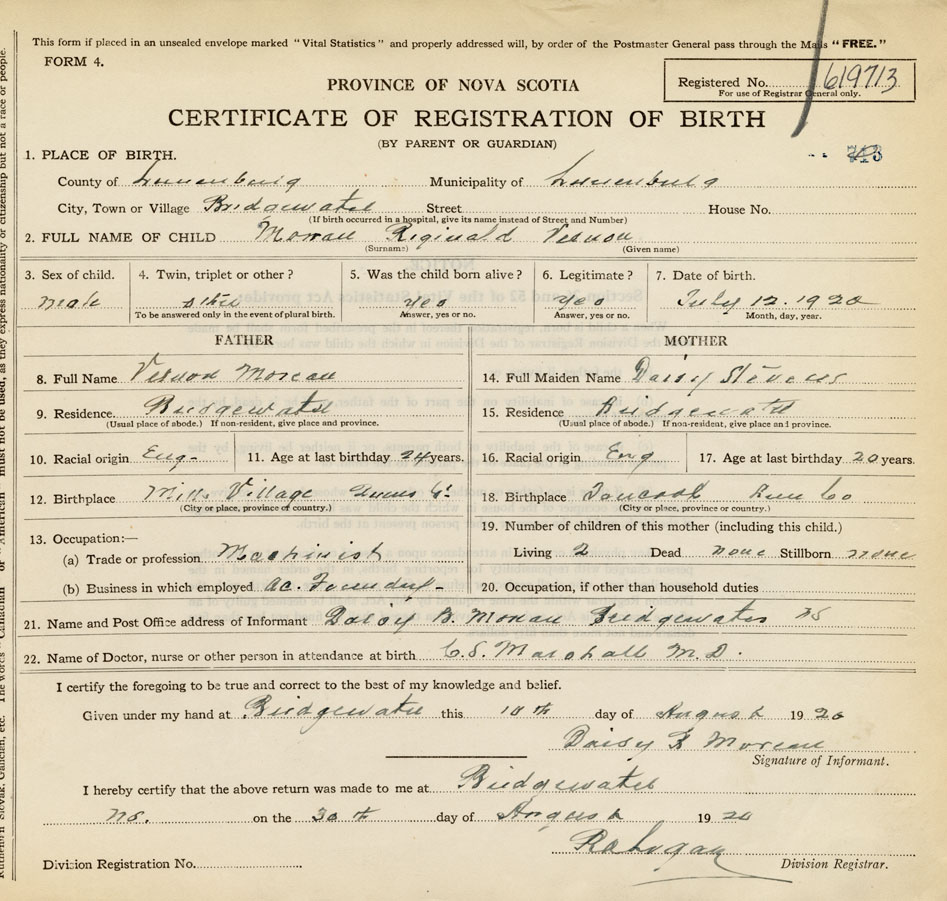 This form if placed in an unsealed envelope marked "Vital Statistics" and properly addressed will, by order of the Postmaster General pass through the Mails "FREE."
FORM 4.
PROVINCE OF NOVA SCOTIA
Registered No. 619713
For use of Registrar General only.
CERTIFICATE OF REGISTRATION OF BIRTH
(BY PARENT OR GUARDIAN)
1. PLACE OF BIRTH.
County of Lunenburg Municipality of Lunenburg
City, Town or Village Bridgewater Street House No.
(If birth occurred in a hospital, give its name instead of Street and Number)
2. FULL NAME OF CHILD Moreau Reginald Vernon
(Surname) (Given name)
3. Sex of child. 4. Twin, triplet or other? 5. Was the child born alive? 6. Legitimate? 7. Date of birth.
male other yes yes July 12. 1920
To be answered only in the event of plural birth. Answer, yes or no. Answer, yes or no. Month, day, year.
FATHER MOTHER
8. Full Name Vernon Moreau 14. Full Maiden Name Daisy Stevens
9. Residence. Bridgewater 15. Residence Bridgewater
(Usual place of abode.) If non-resident, give place and province. (Usual place of abode.) If non-resident, give place and province.
10. Racial origin Eng- 11. Age at last birthday 24 years. 16. Racial origin Eng 17. Age at last birthday 20 years.
12. Birthplace Mills Village Queens Co. 18. Birthplace Tancook Lun Co
(City or place, province or country.) (City or place, province or country.)
13. Occupation:— 19. Number of children of this mother (including this child.)
(a) Trade or profession Machinist Living 2 Dead none Stillborn none
(b) Business in which employed Ac. Foundry - 20. Occupation, if other than household duties
21. Name and Post Office address of Informant Daisy B. Moreau Bridgewater NS
22. Name of Doctor, nurse or other person in attendance at birth C. S. Marshall M.D.
I certify the foregoing to be true and correct to the best of my knowledge and belief.
Given under my hand at Bridgewater this 10th day of August 1920
Daisy B Moreau
Signature of Informant.
I hereby certify that the above return was made to me at Bridgewater
NS. on the 30th day of August 1920
Division Registration No. Division Registrar.